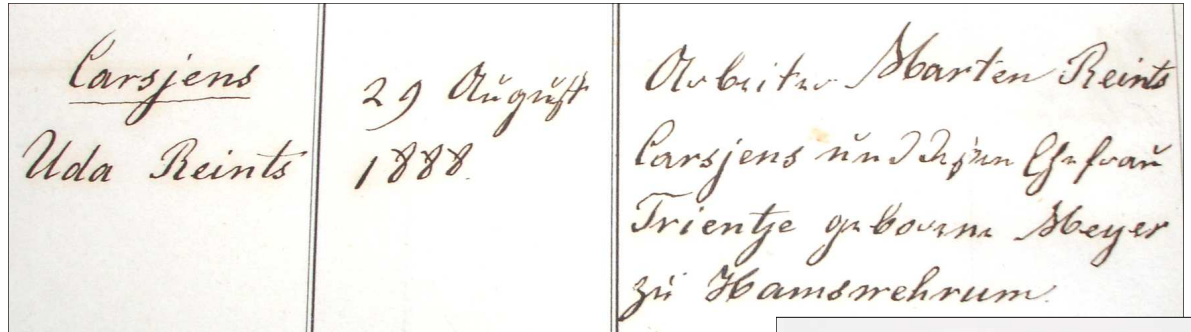 Carsjens
Uda Reints
29 August
1888.
Arbeiter Marten Reints
Carsjens und dessen Ehefrau
Trientje geborene Meyer
zu Hamswehrum.